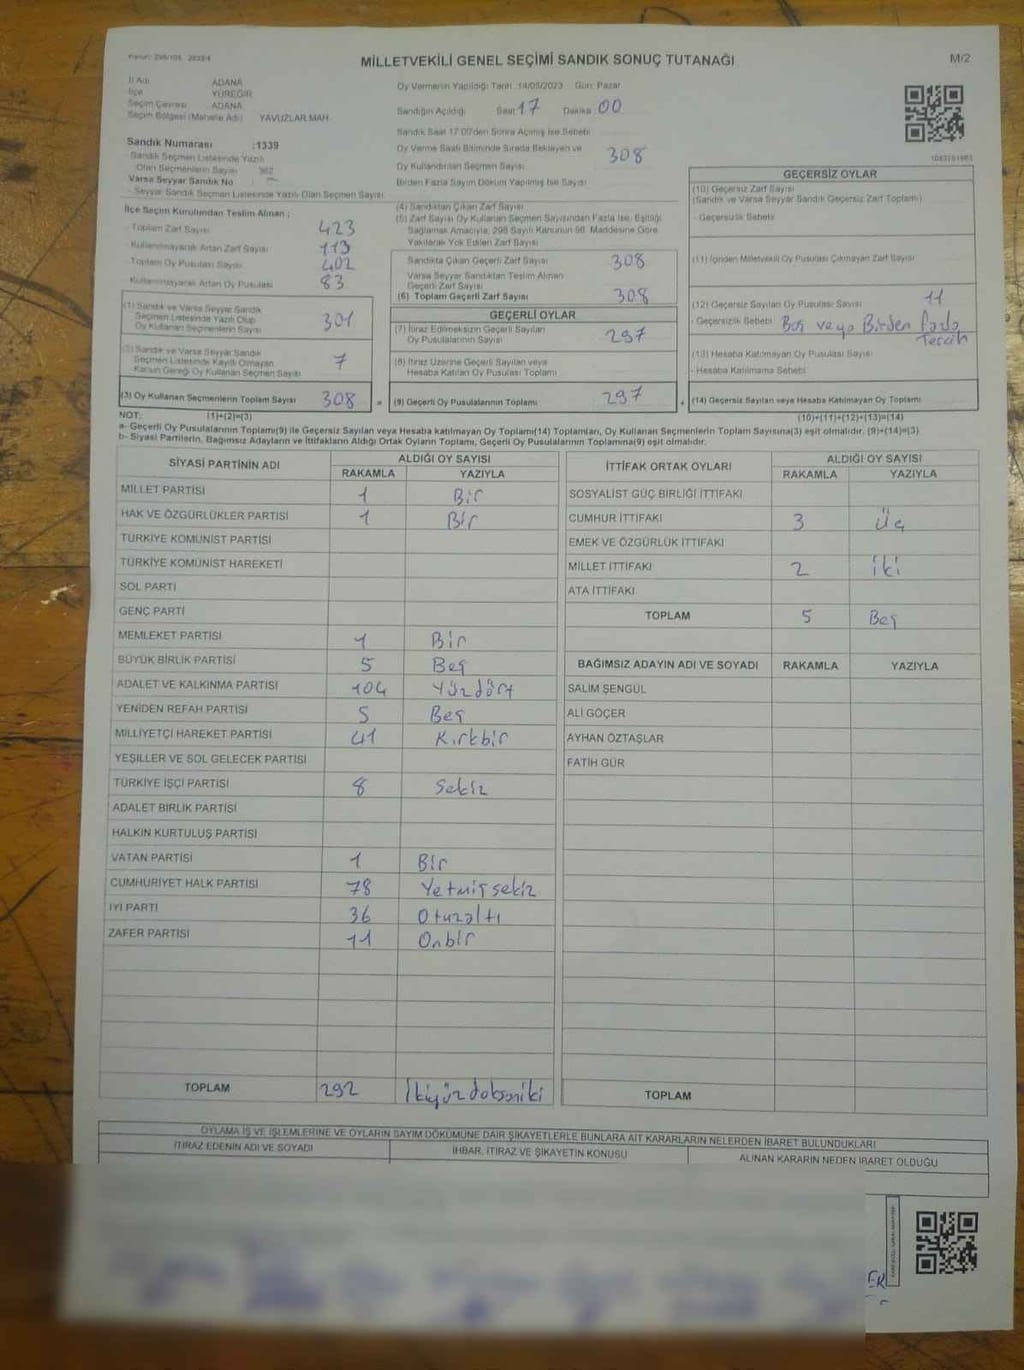 MİLLETVEKİLİ GENEL SEÇİMİ SANDIK SONUÇ TUTANAĞI
M/2
İl Adı ADANA
İlçe YÜREĞİR
Seçim Çevresi ADANA
Seçim Bölgesi (Mahalle Adı) YAVUZLAR MAH.
Sandık Numarası :1339
Sandık Seçmen Listesinde Yazılı
Olan Seçmenlerin Sayısı 362
Varsa Seyyar Sandık No
Seyyar Sandık Seçmen Listesinde Yazılı Olan Seçmen Sayısı
Oy Vermenin Yapıldığı Tarih :14/05/2023 Gün: Pazar
Sandığın Açıldığı Saat 17 Dakika 00
Sandık Saat 17:00'den Sonra Açılmış İse Sebebi
Oy Verme Saati Bitiminde Sırada Bekleyen ve
Oy Kullandırılan Seçmen Sayısı 308
Birden Fazla Sayım Döküm Yapılmış İse Sayısı
İlçe Seçim Kurulundan Teslim Alınan ;
- Toplam Zarf Sayısı 423
- Kullanılmayarak Artan Zarf Sayısı 113
- Toplam Oy Pusulası Sayısı 402
- Kullanılmayarak Artan Oy Pusulası 83
(1) Sandık ve Varsa Seyyar Sandık
Seçmen Listesinde Yazılı Olup
Oy Kullanan Seçmenlerin Sayısı 301
(2) Sandık ve Varsa Seyyar Sandık
Seçmen Listesinde Kayıtlı Olmayan
Kanun Gereği Oy Kullanan Seçmen Sayısı 7
(3) Oy Kullanan Seçmenlerin Toplam Sayısı 308 =
(4) Sandıktan Çıkan Zarf Sayısı
(5) Zarf Sayısı Oy Kullanan Seçmen Sayısından Fazla İse, Eşitliği
Sağlamak Amacıyla, 298 Sayılı Kanunun 98. Maddesine Göre
Yakılarak Yok Edilen Zarf Sayısı
Sandıkta Çıkan Geçerli Zarf Sayısı 308
Varsa Seyyar Sandıktan Teslim Alınan
Geçerli Zarf Sayısı
(6) Toplam Geçerli Zarf Sayısı 308
GEÇERLİ OYLAR
(7) İtiraz Edilmeksizin Geçerli Sayılan
Oy Pusulalarının Sayısı 297
(8) İtiraz Üzerine Geçerli Sayılan veya
Hesaba Katılan Oy Pusulası Toplamı
(9) Geçerli Oy Pusulalarının Toplamı 297 +
GEÇERSİZ OYLAR
(10) Geçersiz Zarf Sayısı
(Sandık ve Varsa Seyyar Sandık Geçersiz Zarf Toplamı)
- Geçersizlik Sebebi
(11) İçinden Milletvekili Oy Pusulası Çıkmayan Zarf Sayısı
(12) Geçersiz Sayılan Oy Pusulası Sayısı 11
- Geçersizlik Sebebi Boş veya Birden fazla
Tercih
(13) Hesaba Katılmayan Oy Pusulası Sayısı
- Hesaba Katılmama Sebebi
(14) Geçersiz Sayılan veya Hesaba Katılmayan Oy Toplamı
NOT: (1)+(2)=(3)
(10)+(11)+(12)+(13)=(14)
a- Geçerli Oy Pusulalarının Toplamı(9) ile Geçersiz Sayılan veya Hesaba katılmayan Oy Toplamı(14) Toplamları, Oy Kullanan Seçmenlerin Toplam Sayısına(3) eşit olmalıdır. (9)+(14)=(3)
b- Siyasi Partilerin, Bağımsız Adayların ve İttifakların Aldığı Ortak Oyların Toplamı, Geçerli Oy Pusulalarının Toplamına(9) eşit olmalıdır.
SİYASİ PARTİNİN ADI ALDIĞI OY SAYISI
RAKAMLA YAZIYLA
MİLLET PARTİSİ 1 Bir
HAK VE ÖZGÜRLÜKLER PARTİSİ 1 Bir
TÜRKİYE KOMÜNİST PARTİSİ
TÜRKİYE KOMÜNİST HAREKETİ
SOL PARTİ
GENÇ PARTİ
MEMLEKET PARTİSİ 1 Bir
BÜYÜK BİRLİK PARTİSİ 5 Beş
ADALET VE KALKINMA PARTİSİ 104 Yüzdört
YENİDEN REFAH PARTİSİ 5 Beş
MİLLİYETÇİ HAREKET PARTİSİ 41 Kırkbir
YEŞİLLER VE SOL GELECEK PARTİSİ
TÜRKİYE İŞÇİ PARTİSİ 8 Sekiz
ADALET BİRLİK PARTİSİ
HALKIN KURTULUŞ PARTİSİ
VATAN PARTİSİ 1 Bir
CUMHURİYET HALK PARTİSİ 78 Yetmişsekiz
İYİ PARTİ 36 Otuzaltı
ZAFER PARTİSİ 11 Onbir
TOPLAM 292 İkiyüzdoksaniki
İTTİFAK ORTAK OYLARI ALDIĞI OY SAYISI
RAKAMLA YAZIYLA
SOSYALİST GÜÇ BİRLİĞİ İTTİFAKI
CUMHUR İTTİFAKI 3 Üç
EMEK VE ÖZGÜRLÜK İTTİFAKI
MİLLET İTTİFAKI 2 İki
ATA İTTİFAKI
TOPLAM 5 Beş
BAĞIMSIZ ADAYIN ADI VE SOYADI RAKAMLA YAZIYLA
SALİM ŞENGÜL
ALİ GÖÇER
AYHAN ÖZTAŞLAR
FATİH GÜR
TOPLAM
OYLAMA İŞ VE İŞLEMLERİNE VE OYLARIN SAYIM DÖKÜMÜNE DAİR ŞİKAYETLERLE BUNLARA AİT KARARLARIN NELERDEN İBARET BULUNDUKLARI
İTİRAZ EDENİN ADI VE SOYADI İHBAR, İTİRAZ VE ŞİKAYETİN KONUSU ALINAN KARARIN NEDEN İBARET OLDUĞU